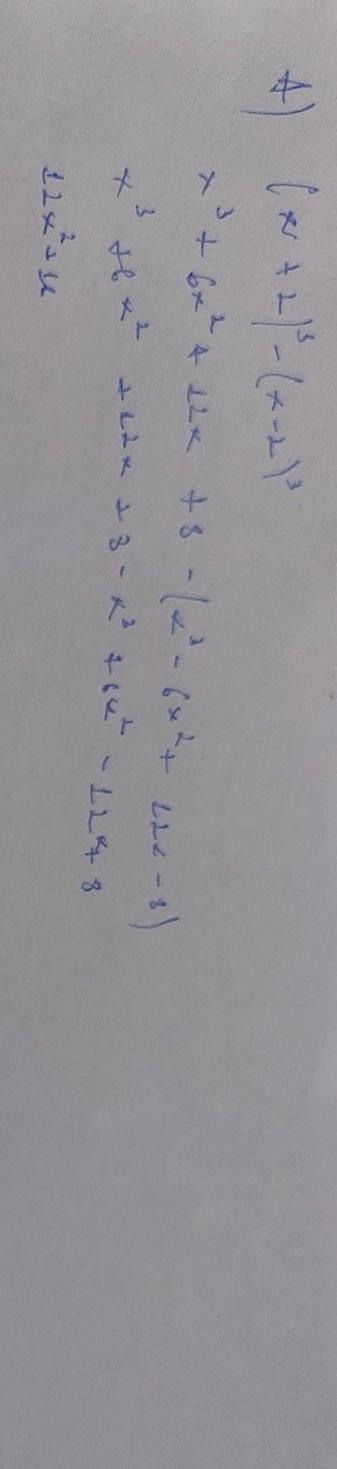 4) (x+2)³-(x-2)³
x³+6x²+12x+8-(x³-6x²+12x-8)
x³+6x²+12x+8-x³+6x²-12x+8
12x²+